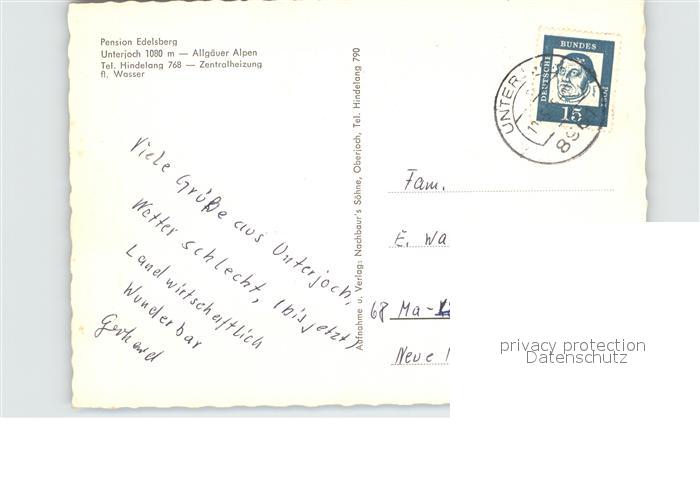 Pension Edelsberg
Unterjoch 1080 m — Allgäuer Alpen
Tel. Hindelang 768 — Zentralheizung
fl. Wasser
Viele Grüße aus Unterjoch,
Wetter schlecht, (bis jetzt)
Landwirtschaftlich
Wunderbar
Gerhard
Aufnahme u. Verlag: Nachbaur's Söhne, Oberjoch, Tel. Hindelang 790
DEUTSCHE
BUNDES
POST
15
UNTER
Fam.
E. Wa
68 Ma-
Neue
privacy protection
Datenschutz